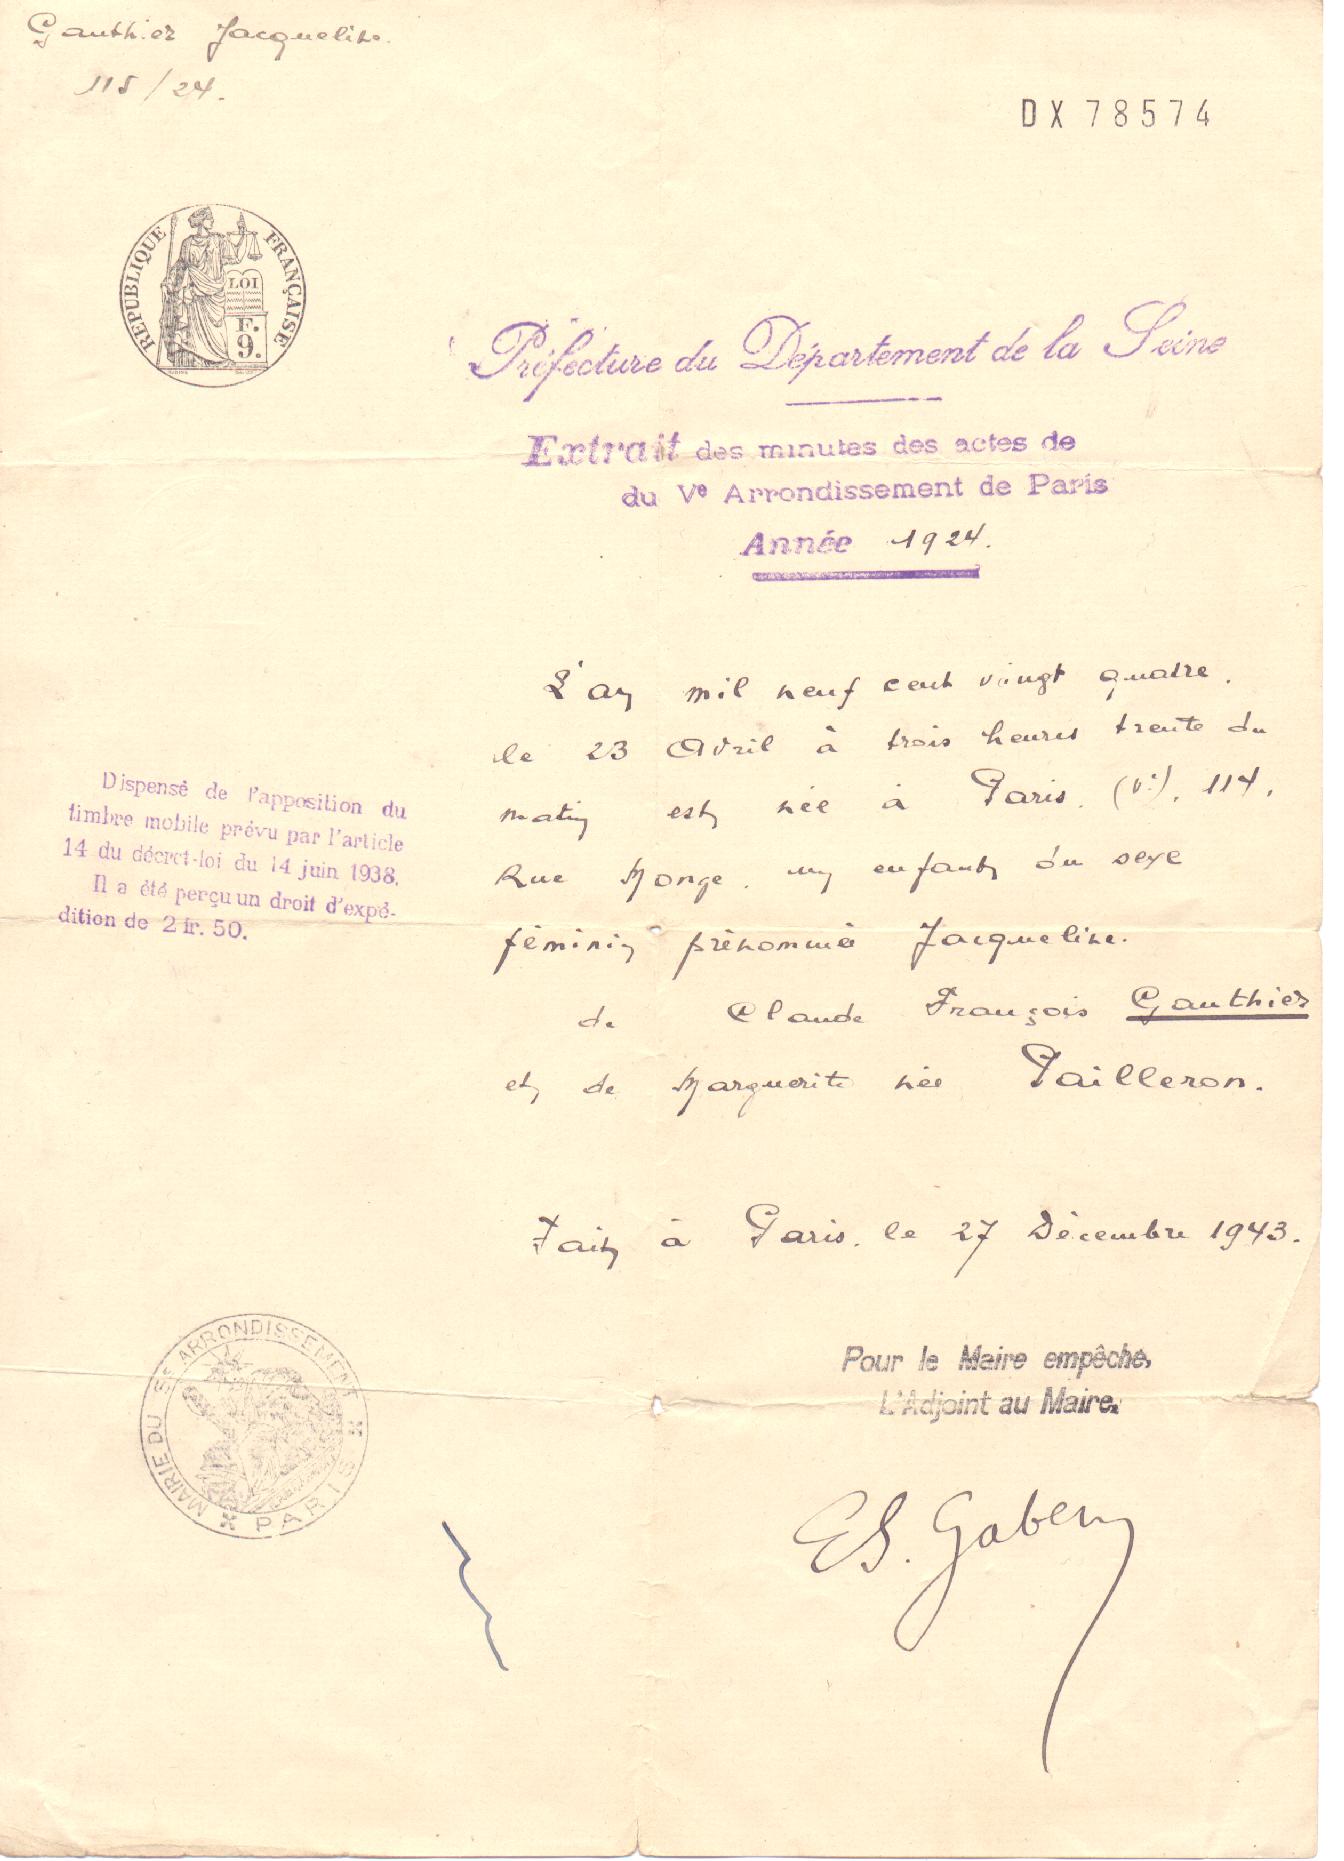 Gauthier Jacqueline.
115/24.
DX 78574
REPUBLIQUE FRANÇAISE
LOI
F.
9.
Préfecture du Département de la Seine
Extrait des minutes des actes de
du Ve Arrondissement de Paris
Année 1924.
L'an mil neuf cent vingt quatre.
le 23 Avril à trois heures trente du
matin est née à Paris. (Ve). 114,
Rue Monge. un enfant du sexe
féminin prénommée Jacqueline.
de Claude François Gauthier
et de Marguerite née Pailleron.
Dispensé de l'apposition du
timbre mobile prévu par l'article
14 du décret-loi du 14 juin 1938.
Il a été perçu un droit d'expé-
dition de 2 fr. 50.
Fait à Paris. le 27 Décembre 1943.
Pour le Maire empêché,
L'Adjoint au Maire.
MAIRIE DU 5e ARRONDISSEMENT
PARIS